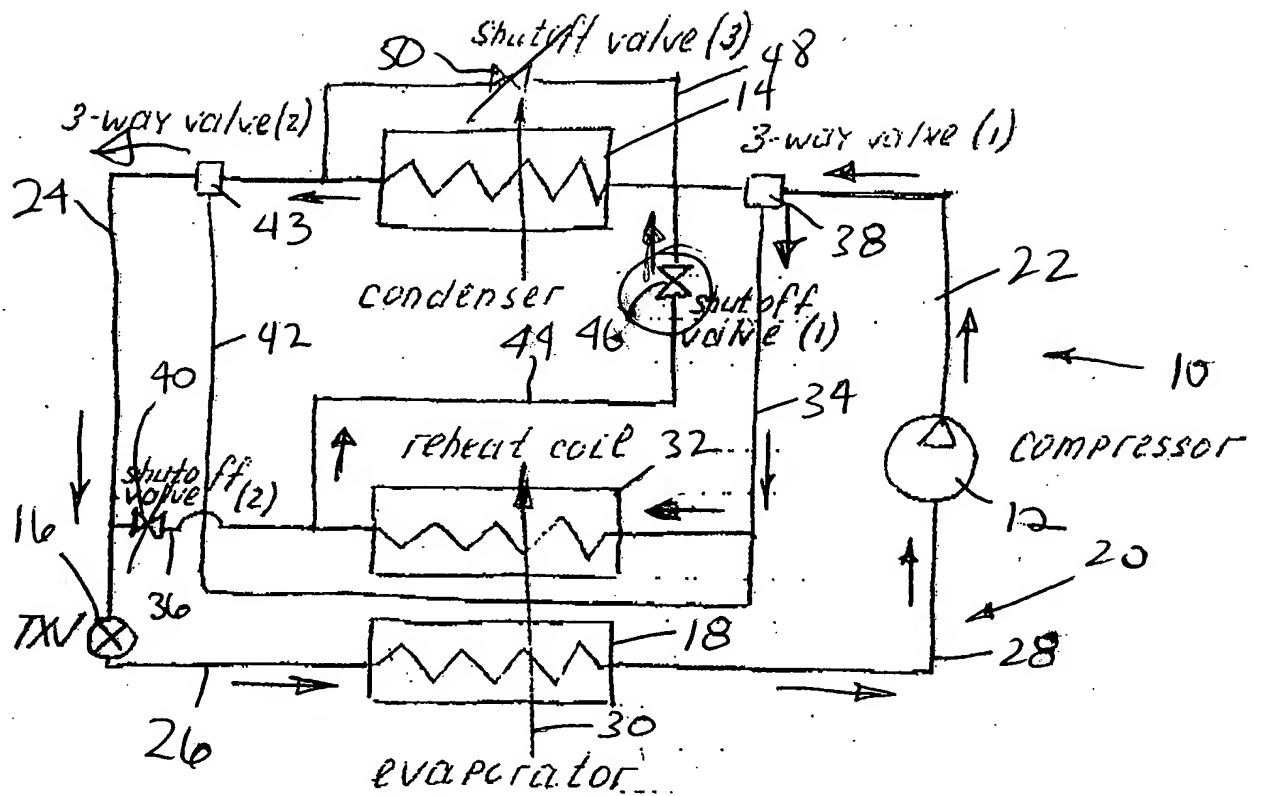 shutoff valve (3)
50
48
14
3-way valve (2)
3-way valve (1)
24
43
38
condenser
22
shutoff
valve (1)
46
44
42
40
10
34
reheat coil
32
compressor
shutoff
valve (2)
16
12
36
20
TXV
18
28
26
30
evaporator